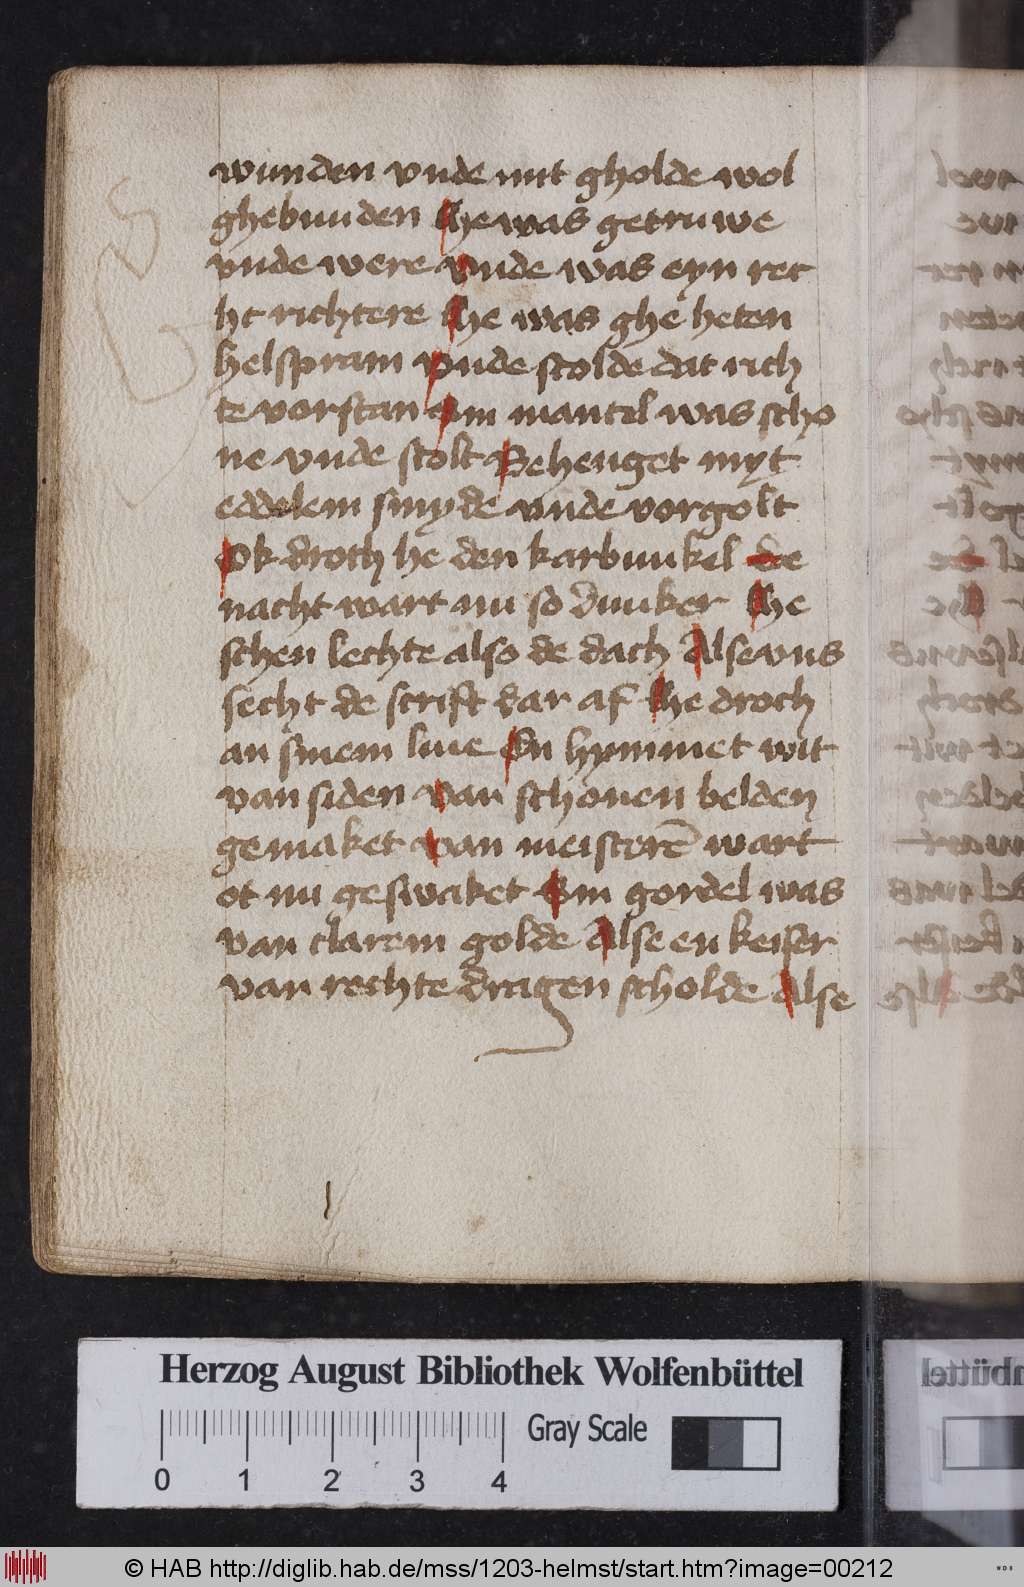 wunden vnde mit gholde wol
ghebunden He was getruwe
vnde were vnde was eyn rec
ht richtere He was ghe heten
helspram vnde scolde dat rich
te vorstan Sin mantel was scho
ne vnde stolt Behenget myt
eddelem smyde vnde vorgolt
Ok droch he den karbunkel de
nacht wart nu so dunker He
schen lechte also de dach Alse vns
secht de scrift dar af He droch
an sinem liue En hymmet wit
van siden van schonen belden
gemaket van meisterē wart
ot nu geswaket Sin gordel was
van clarem golde Alse en keiser
van rechte dragen scholde Alse
Herzog August Bibliothek Wolfenbüttel
0 1 2 3 4 Gray Scale
© HAB http://diglib.hab.de/mss/1203-helmst/start.htm?image=00212